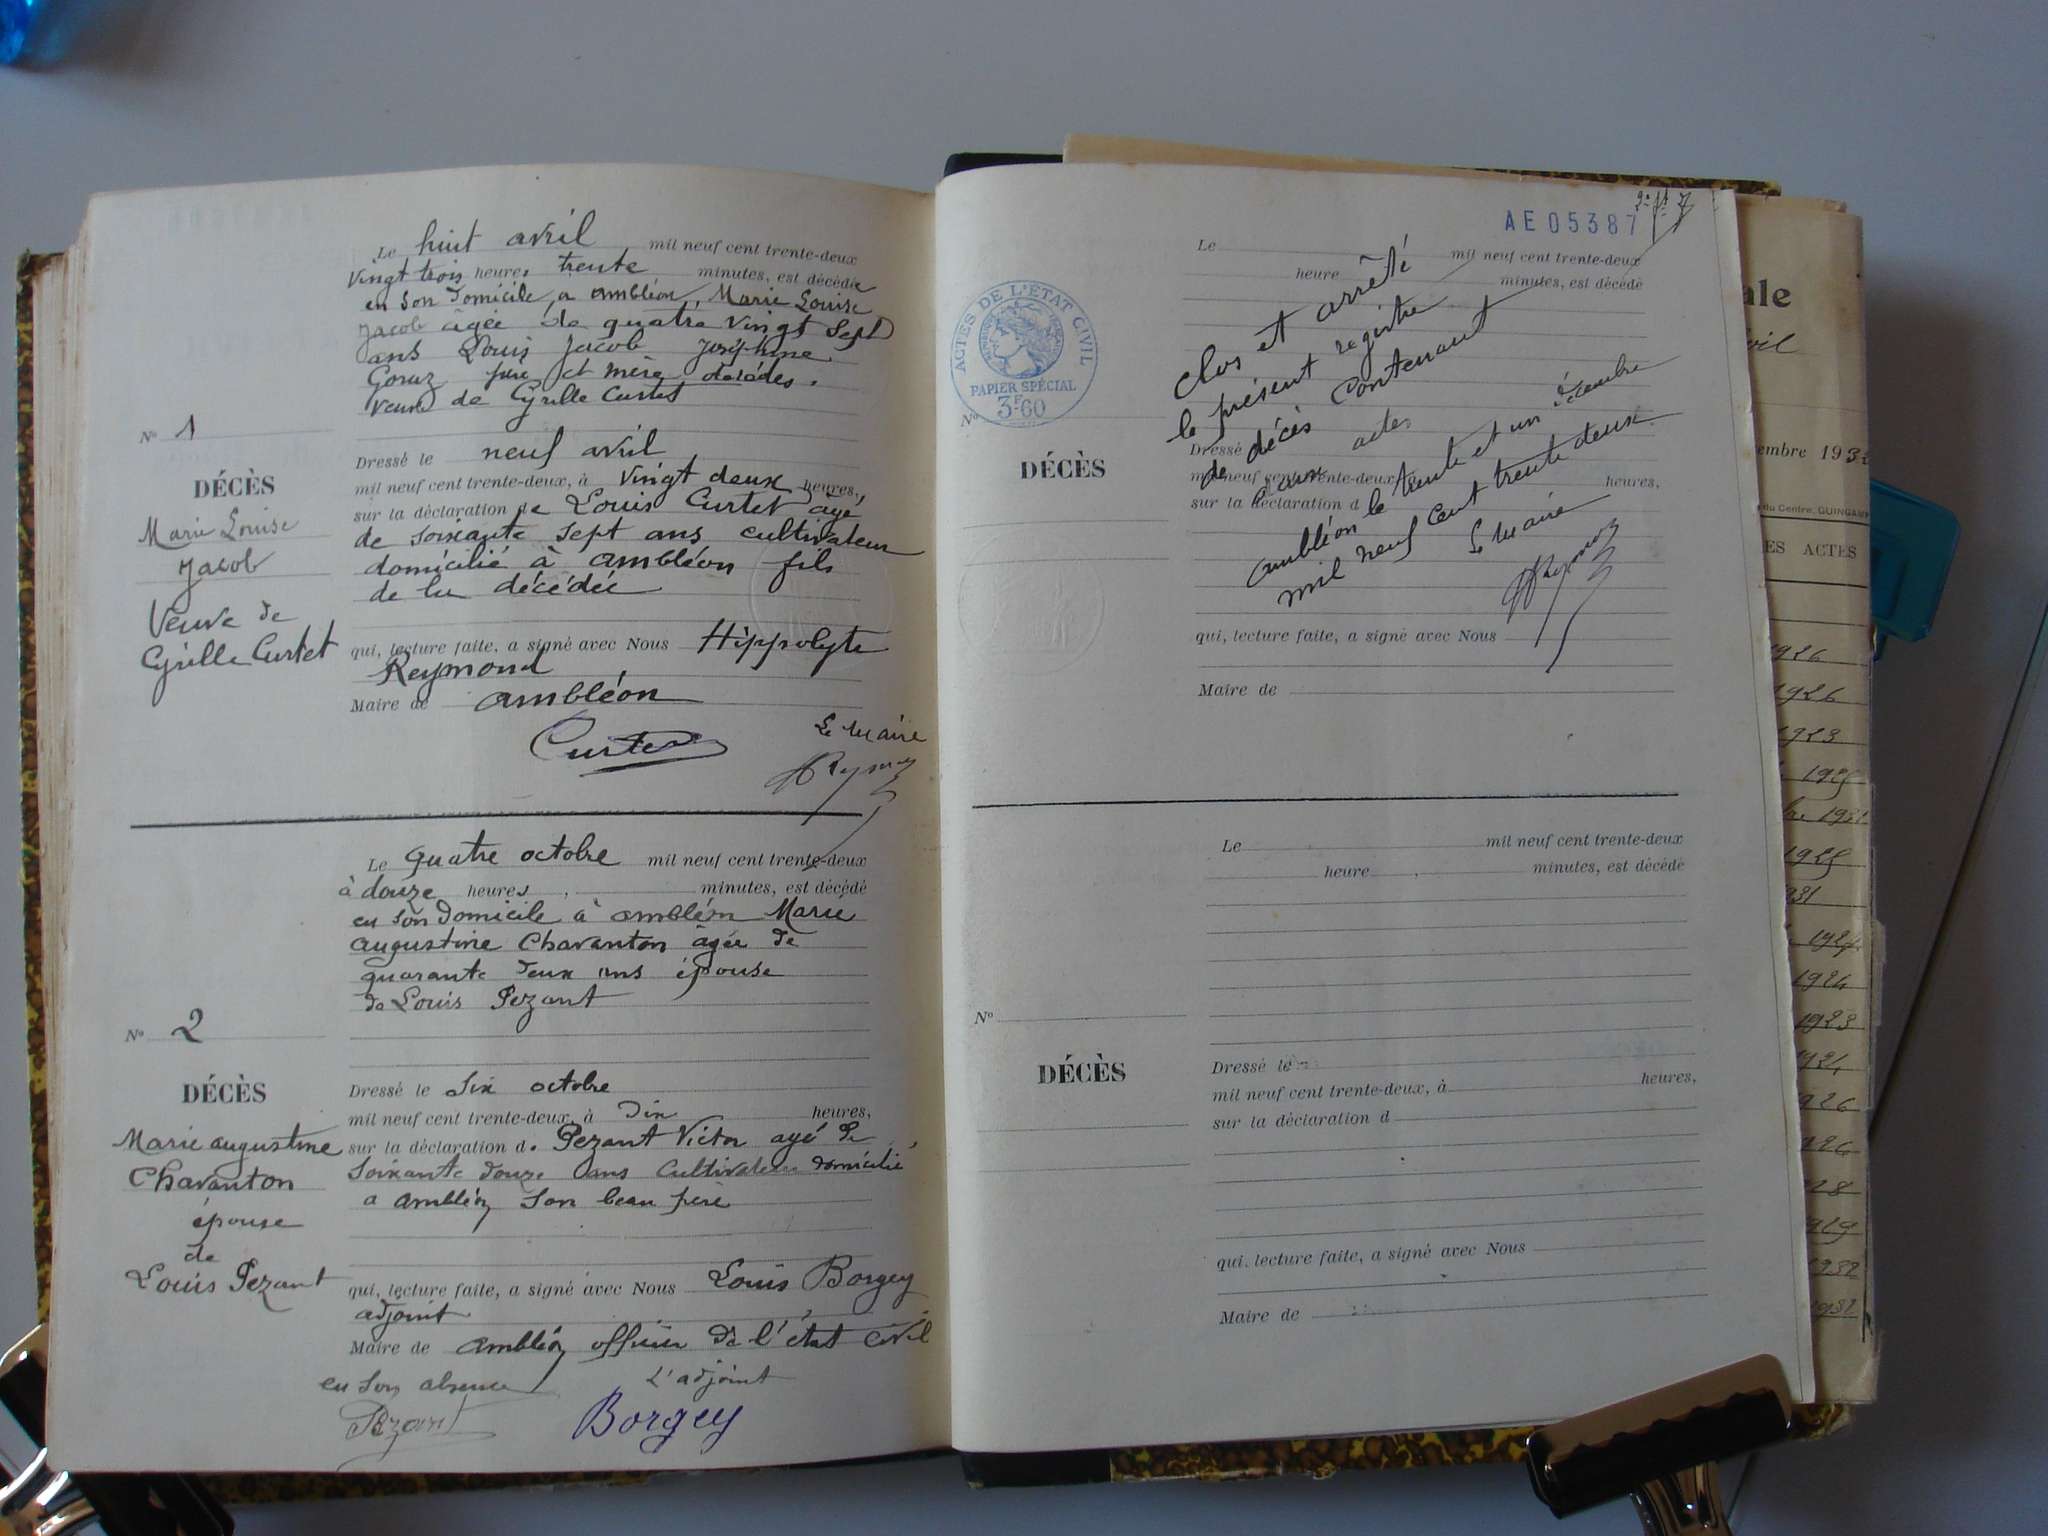 Le huit avril mil neuf cent trente-deux
Vingt trois heures trente minutes, est décédée
en son domicile a ambléon, Marie Louise
Jacob âgée de quatre Vingt Sept
ans Louis Jacob Joséphine
père et mère décédés.
Veuve de Cyrille Curtet
Nº 1
DÉCÈS
Marie Louise
Jacob
Veuve de
Cyrille Curtet
Dressé le neuf avril
mil neuf cent trente-deux, à Vingt deux heures,
sur la déclaration de Louis Curtet âgé
de soixante sept ans cultivateur
domicilié à ambléon fils
de la décédée
qui, lecture faite, a signé avec Nous Hippolyte
Reymond
Maire de ambléon
Curtet
Le Maire
HReymond
Le quatre octobre mil neuf cent trente-deux
à douze heures, minutes, est décédé
en son domicile à ambléon Marie
augustine Chavanton âgée de
quarante deux ans épouse
de Louis Pezant
Nº 2
DÉCÈS
Marie augustine
Chavanton
épouse
de
Louis Pezant
Dressé le Six octobre
mil neuf cent trente-deux, à Dix heures,
sur la déclaration d. Pezant Victor agé de
soixante douze ans Cultivateur domicilié
a ambléon son beau père
qui, lecture faite, a signé avec Nous Louis Borgey
adjoint
Maire de ambléon officier de l'état civil
en son absence L'adjoint
Pezant Borgey
AE05387
Le mil neuf cent trente-deux
heure minutes, est décédé
ACTES DE L'ÉTAT CIVIL
PAPIER SPÉCIAL
3F.60
Nº
DÉCÈS
Clos et arrêté
le présent registre
de décès Contenant
deux actes
ambléon le trente et un décembre
mil neuf cent trente deux
Le Maire
HReymond
Dressé
mil neuf cent trente-deux heures,
sur la déclaration d
qui, lecture faite, a signé avec Nous
Maire de
Le mil neuf cent trente-deux
heure minutes, est décédé
Nº
DÉCÈS
Dressé le
mil neuf cent trente-deux, à heures,
sur la déclaration d
qui, lecture faite, a signé avec Nous
Maire de
ale
embre 1932
du Centre, GUINGAMP
ES ACTES
1926
1926
1923
1931
1925
1931
1924
1923
1926
1932
1932